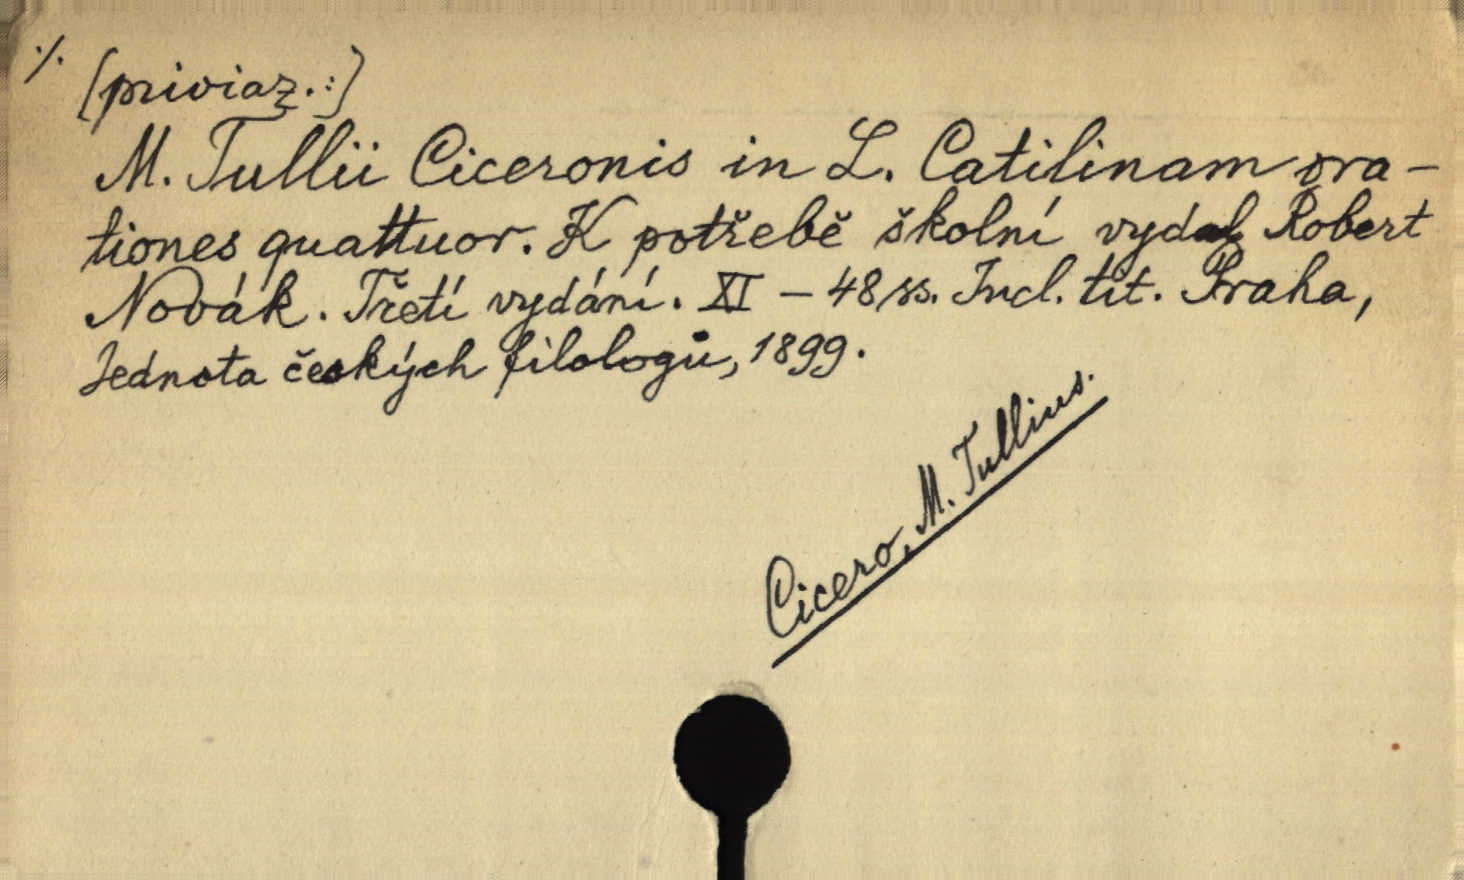 ·/.
[priviaz.:]
M. Tullii Ciceronis in L. Catilinam ora-
tiones quattuor. K potřebě školní vydal Robert
Novák. Třetí vydání. XI – 48 ss. Incl. tit. Praha,
Jednota českých filologů, 1899.
Cicero, M. Tullius.